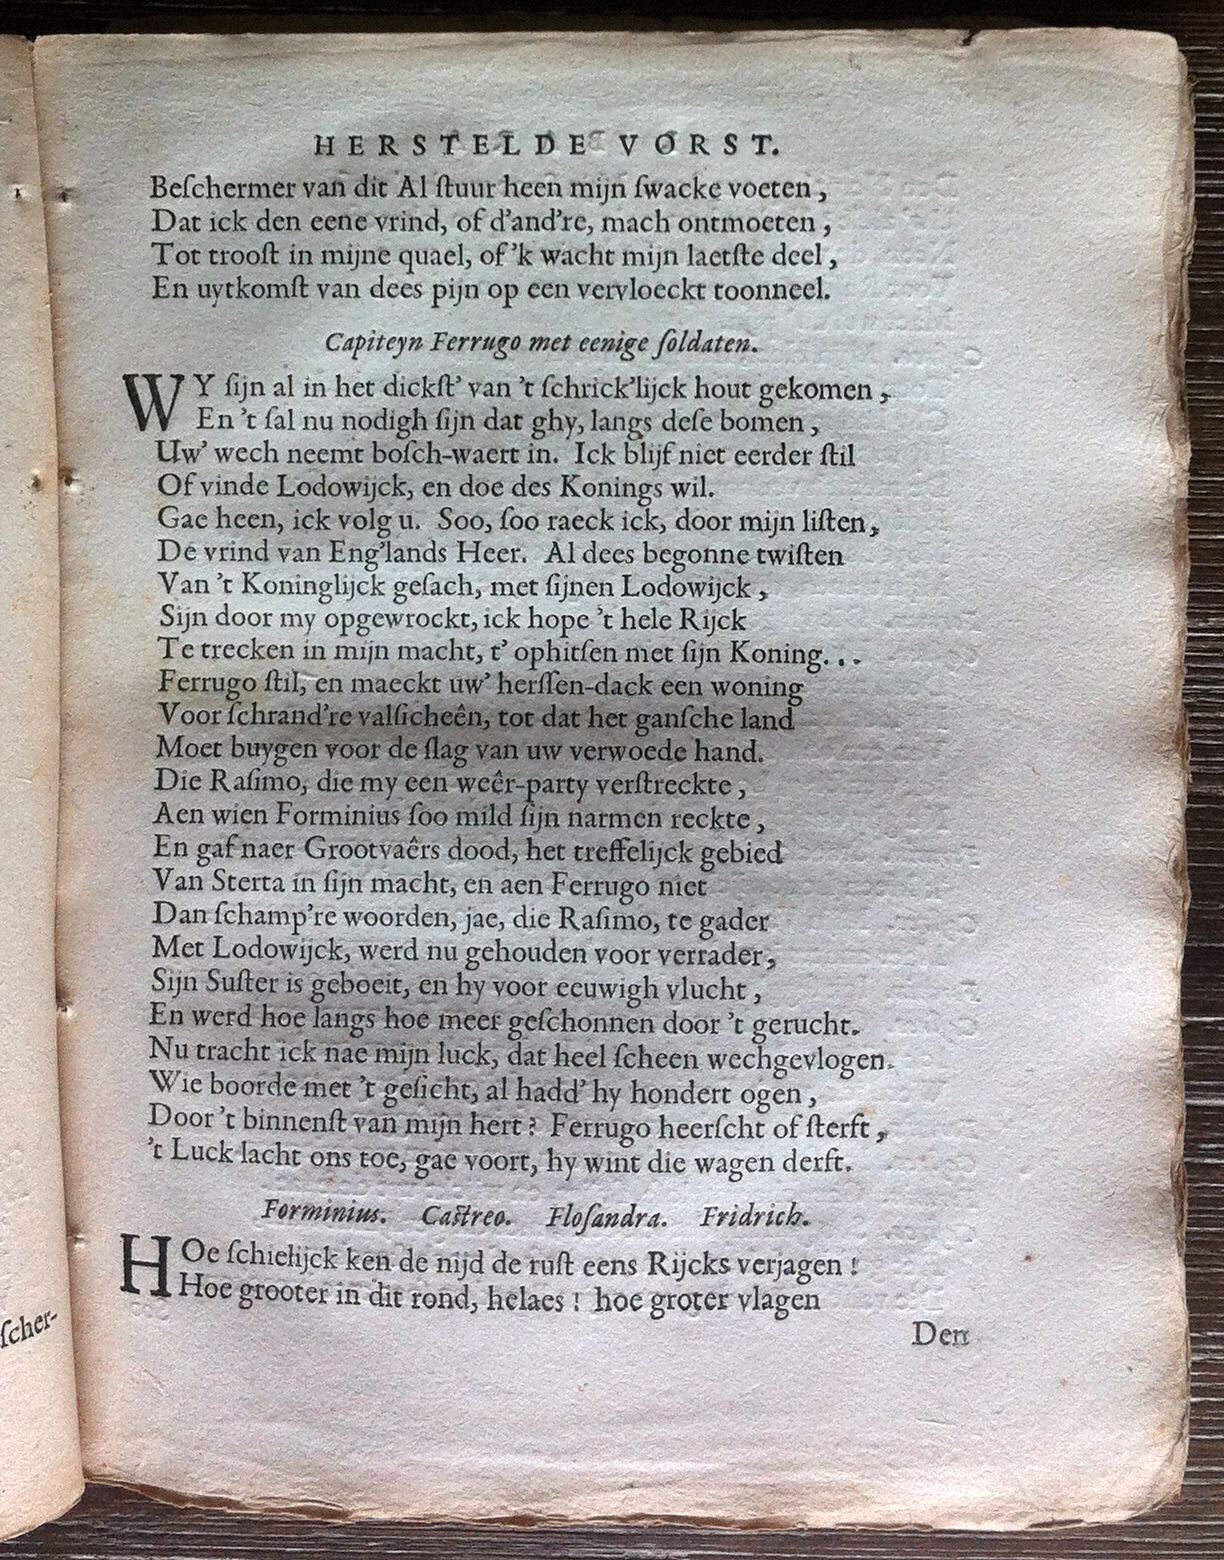 HERSTELDE VORST.
Beſchermer van dit Al ſtuur heen mijn ſwacke voeten,
Dat ick den eene vrind, of d'and're, mach ontmoeten,
Tot trooſt in mijne quael, of 'k wacht mijn laetſte deel,
En uytkomſt van dees pijn op een vervloeckt toonneel.
Capiteyn Ferrugo met eenige ſoldaten.
WY ſijn al in het dickſt' van 't ſchrick'lijck hout gekomen,
En 't ſal nu nodigh ſijn dat ghy, langs deſe bomen,
Uw' wech neemt boſch-waert in. Ick blijf niet eerder ſtil
Of vinde Lodowijck, en doe des Konings wil.
Gae heen, ick volg u. Soo, ſoo raeck ick, door mijn liſten,
De vrind van Eng'lands Heer. Al dees begonne twiſten
Van 't Koninglijck geſach, met ſijnen Lodowijck,
Sijn door my opgewrockt, ick hope 't hele Rijck
Te trecken in mijn macht, t' ophitſen met ſijn Koning...
Ferrugo ſtil, en maeckt uw' herſſen-dack een woning
Voor ſchrand're valſicheên, tot dat het ganſche land
Moet buygen voor de ſlag van uw verwoede hand.
Die Raſimo, die my een weêr-party verſtreckte,
Aen wien Forminius ſoo mild ſijn narmen reckte,
En gaf naer Grootvaêrs dood, het treffelijck gebied
Van Sterta in ſijn macht, en aen Ferrugo niet
Dan ſchamp're woorden, jae, die Raſimo, te gader
Met Lodowijck, werd nu gehouden voor verrader,
Sijn Suſter is geboeit, en hy voor eeuwigh vlucht,
En werd hoe langs hoe meer geſchonnen door 't gerucht.
Nu tracht ick nae mijn luck, dat heel ſcheen wechgevlogen.
Wie boorde met 't geſicht, al hadd' hy hondert ogen,
Door 't binnenſt van mijn hert? Ferrugo heerſcht of ſterft,
't Luck lacht ons toe, gae voort, hy wint die wagen derft.
Forminius. Caſtreo. Floſandra. Fridrich.
HOe ſchielijck ken de nijd de ruſt eens Rijcks verjagen!
Hoe grooter in dit rond, helaes! hoe groter vlagen
Den
ſcher-